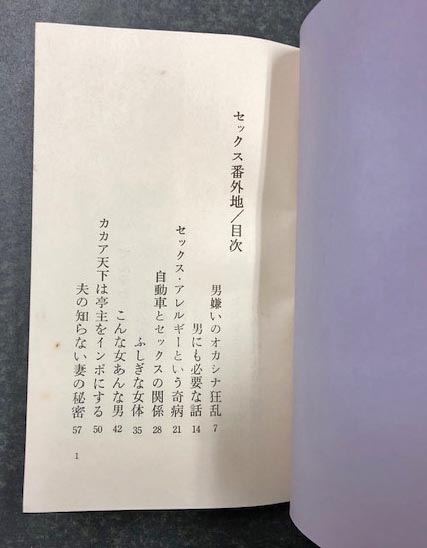 セックス番外地/目次
男嫌いのオカシナ狂乱 7
男にも必要な話 14
セックス・アレルギーという奇病 21
自動車とセックスの関係 28
ふしぎな女体 35
こんな女あんな男 42
カカア天下は亭主をインポにする 50
夫の知らない妻の秘密 57
1